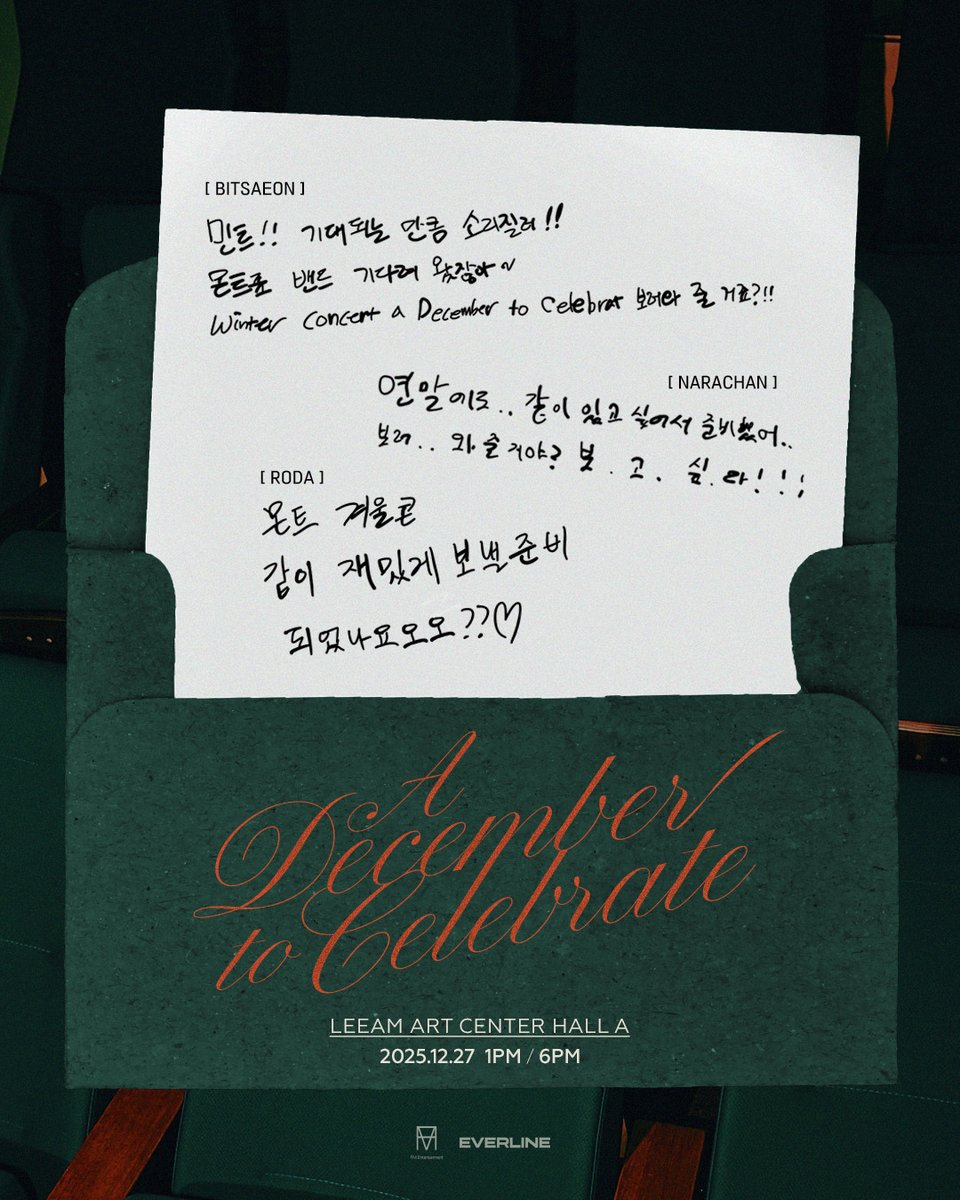 [ BITSAEON ]
민트!! 기대되는 만큼 소리질러!!
몬트로 밴드 기다려 왔잖아~
Winter concert a December to Celebrat 보러와 줄 거죠?!!
[ NARACHAN ]
연말이고.. 같이 있고 싶어서 준비했어..
보러.. 와 줄 거야? 봇. 고. 싶. 다!!;
[ RODA ]
몬트 겨울콘
같이 재밌게 보낼 준비
되었나요오오??♡
A
December
to Celebrate
LEEAM ART CENTER HALL A
2025.12.27 1PM / 6PM
EVERLINE